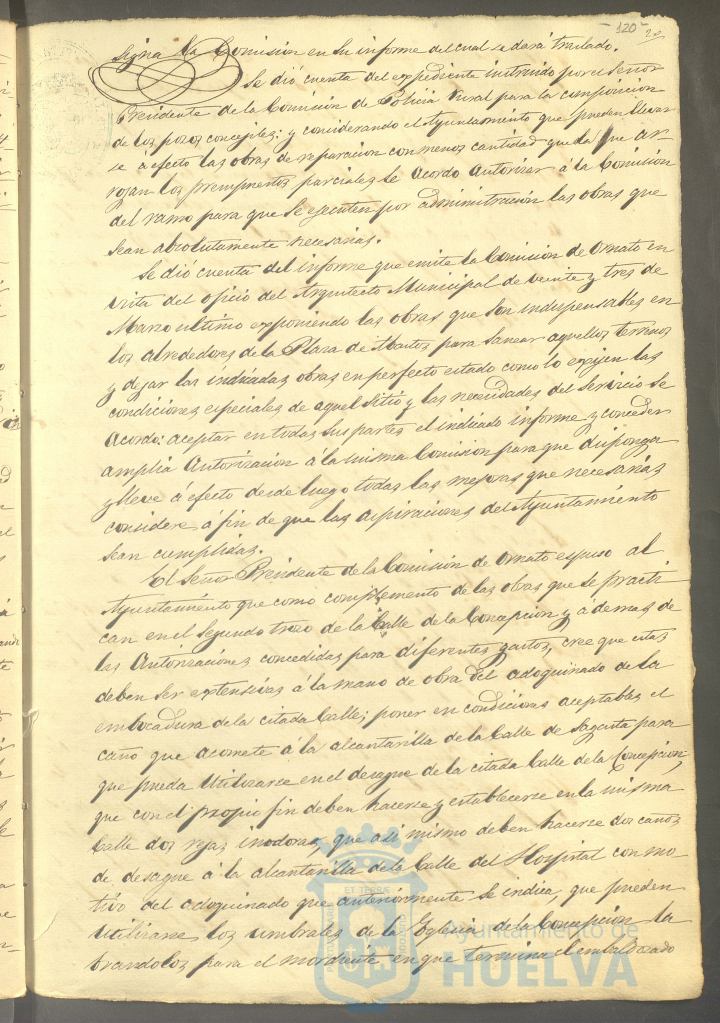 - 120 -
signa la Comisión en su informe del cual se dará traslado.
Se dió cuenta del expediente instruido por el Señor
Presidente de la Comisión de Policia Rural para la composicion
de los pozos concejiles: y considerando el Ayuntamiento que pueden llevar
se á efecto las obras de reparacion con menos cantidad que la que ar
rojan los presupuestos parciales se Acordo Autorizar á la Comisión
del ramo para que se ejecuten por administración las obras que
sean absolutamente necesarias.
Se dió cuenta del informe que emite la Comisión de Ornato en
vista del oficio del Arquitecto Municipal de veinte y tres de
Marzo ultimo exponiendo las obras que son indispensables en
los alrededores de la Plaza de Abastos para sanear aquellos terrenos
y dejar las indicadas obras en perfecto estado como lo exijen las
condiciones especiales de aquel Sitio y las necesidades del Servicio se
Acordo: aceptar en todas sus partes el indicado informe y conceder
amplia Autorizacion á la misma Comisión para que disponga
y lleve á efecto desde luego todas las mejoras que necesarias
considere á fin de que las aspiraciones del Ayuntamiento
sean cumplidas.
El Señor Presidente de la Comisión de Ornato espuso al
Ayuntamiento que como complemento de las obras que se practi
can en el segundo trozo de la Calle de la Concepcion y ademas de
las Autorizaciones concedidas para diferentes gastos, cree que estas
deben ser extensivas á la mano de obra del adoquinado de la
embocadura de la citada Calle; poner en condiciones aceptables el
caño que acomete á la alcantarilla de la Calle de Sagasta para
que pueda Utilizarse en el desague de la citada Calle de la Concepcion,
que con el propio fin deben hacerse y establecerse en la misma
Calle dos rejas inodoras, que asi mismo deben hacerse dos caños
de desague á la alcantarilla de la Calle del Hospital con mo
tivo del adoquinado que anteriormente se indica, que pueden
Utilizarse los umbrales de la Yglesia de la Concepcion la
brandolos para el mordiente en que termina el embaldosado
ET TERRÆ
Ayuntamiento de
HUELVA